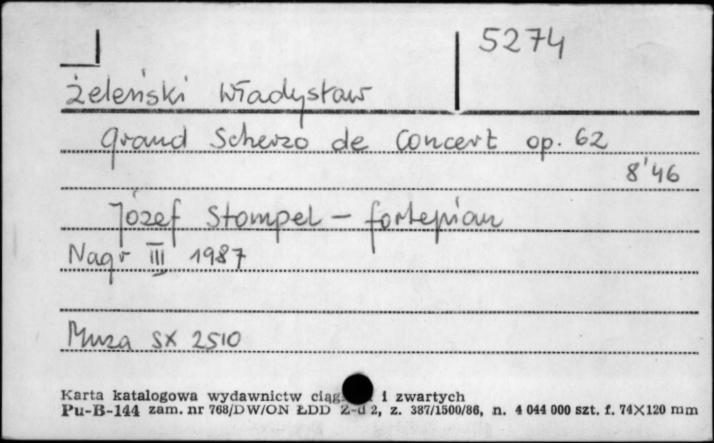 5274
Żeleński Władysław
Grand Scherzo de Concert op. 62
8'46
Józef Stompel – fortepian
Nagr III 1987
Muza SX 2510
Karta katalogowa wydawnictw i zwartych
Pu-B-144 zam. nr 768/DW/ON ŁDD Z-d 2, z. 387/1500/86, n. 4 044 000 szt. f. 74×120 mm